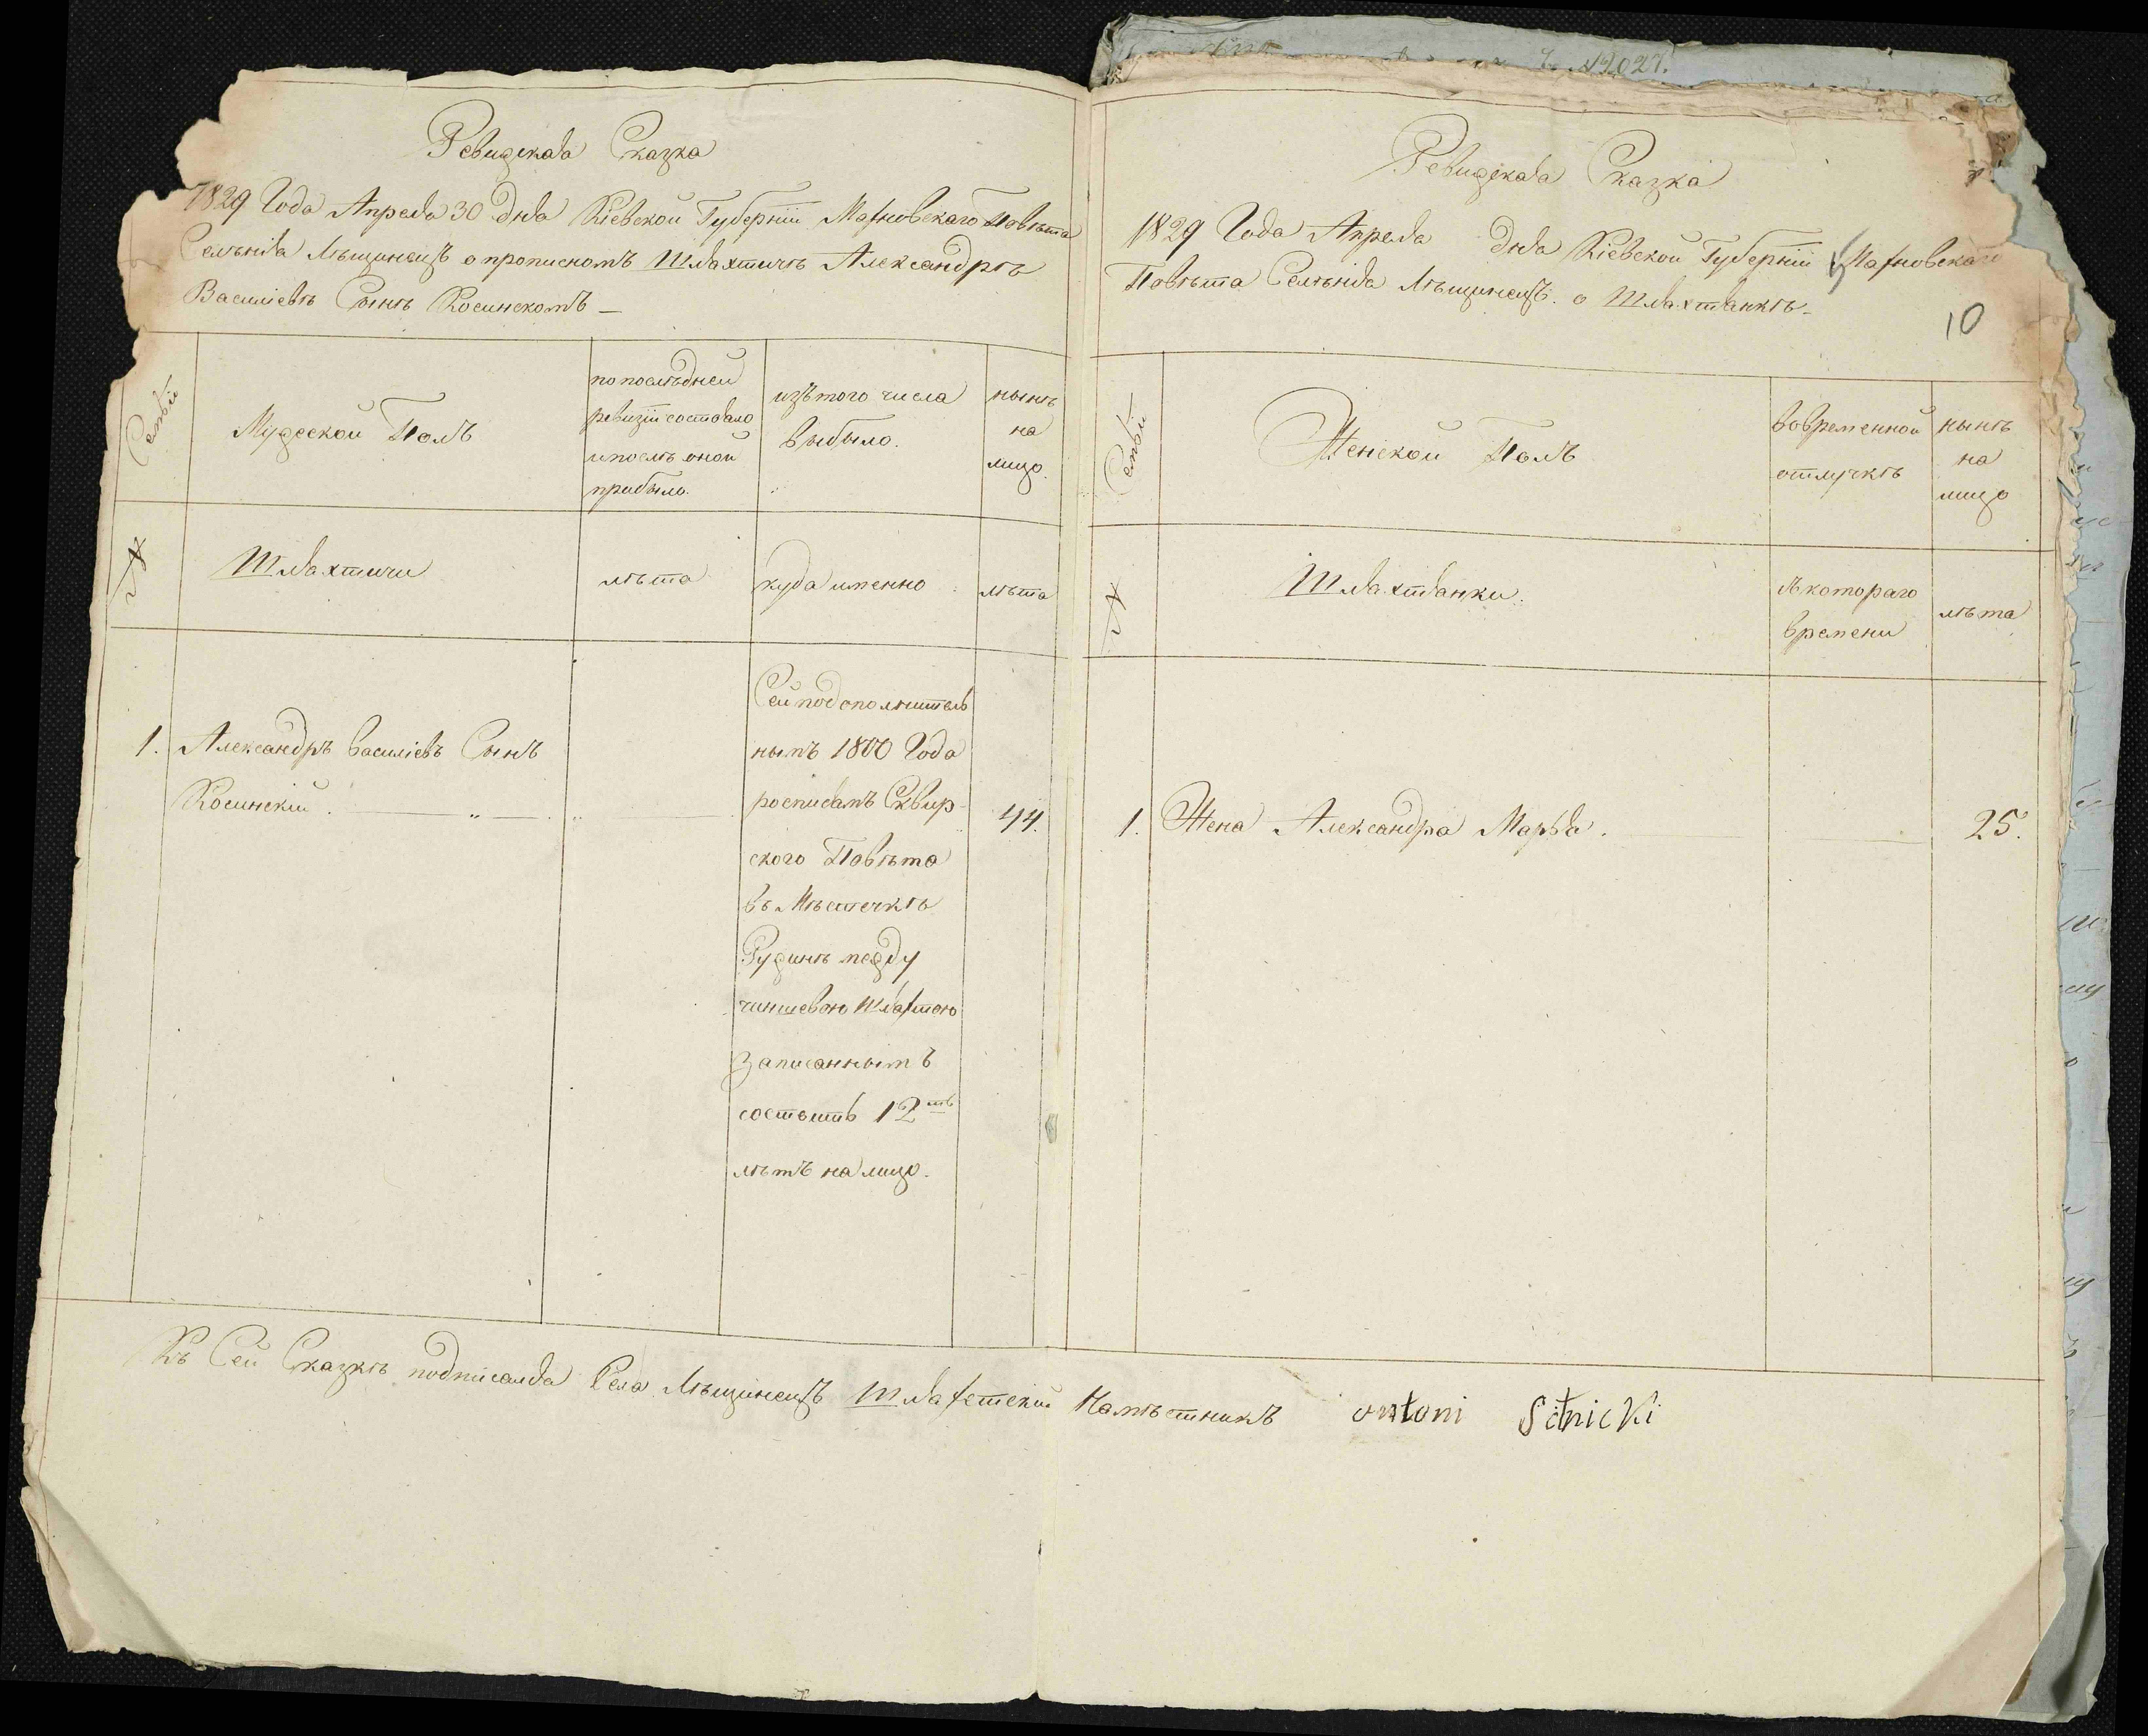 Ревизская Сказка
1829 Года Апреля 30 дня Кіевской Губерніи Махновскаго Повѣта
Селенія Мѣщинецъ о прописномъ Шляхтичѣ Александрѣ
Василіевѣ Сынѣ Косинскомъ —
Семьи
Мужеской Полъ
по послѣдней
ревизіи состояло
и послѣ оной
прибыло.
изъ того числа
выбыло.
нынѣ
на
лицо.
№
Шляхтичи
лѣта
куда именно
лѣта
1. Александръ Василіевъ Сынъ
Косинскій.
Сей по дополнитель
нымъ 1800 Года
росписямъ Сквир-
ского Повѣта
въ Мѣстечкѣ
Ружинѣ между
чиншевою Шляхтою
записаннымъ
состоитъ 12ть
лѣтъ на лицо.
44.
Ревизская Сказка
1829 Года Апреля дня Кіевской Губерніи Махновскаго
Повѣта Селенія Мѣщинецъ. о Шляхтянкѣ.
10
Семьи
Женской Полъ
во временной
отлучкѣ
нынѣ
на
лицо
№
Шляхтянки.
съ котораго
времени
лѣта
1. Жена Александра Марья.
25.
Къ Сей Сказкѣ подписался Села Мѣщинецъ Шляхетскій Намѣстникъ antoni